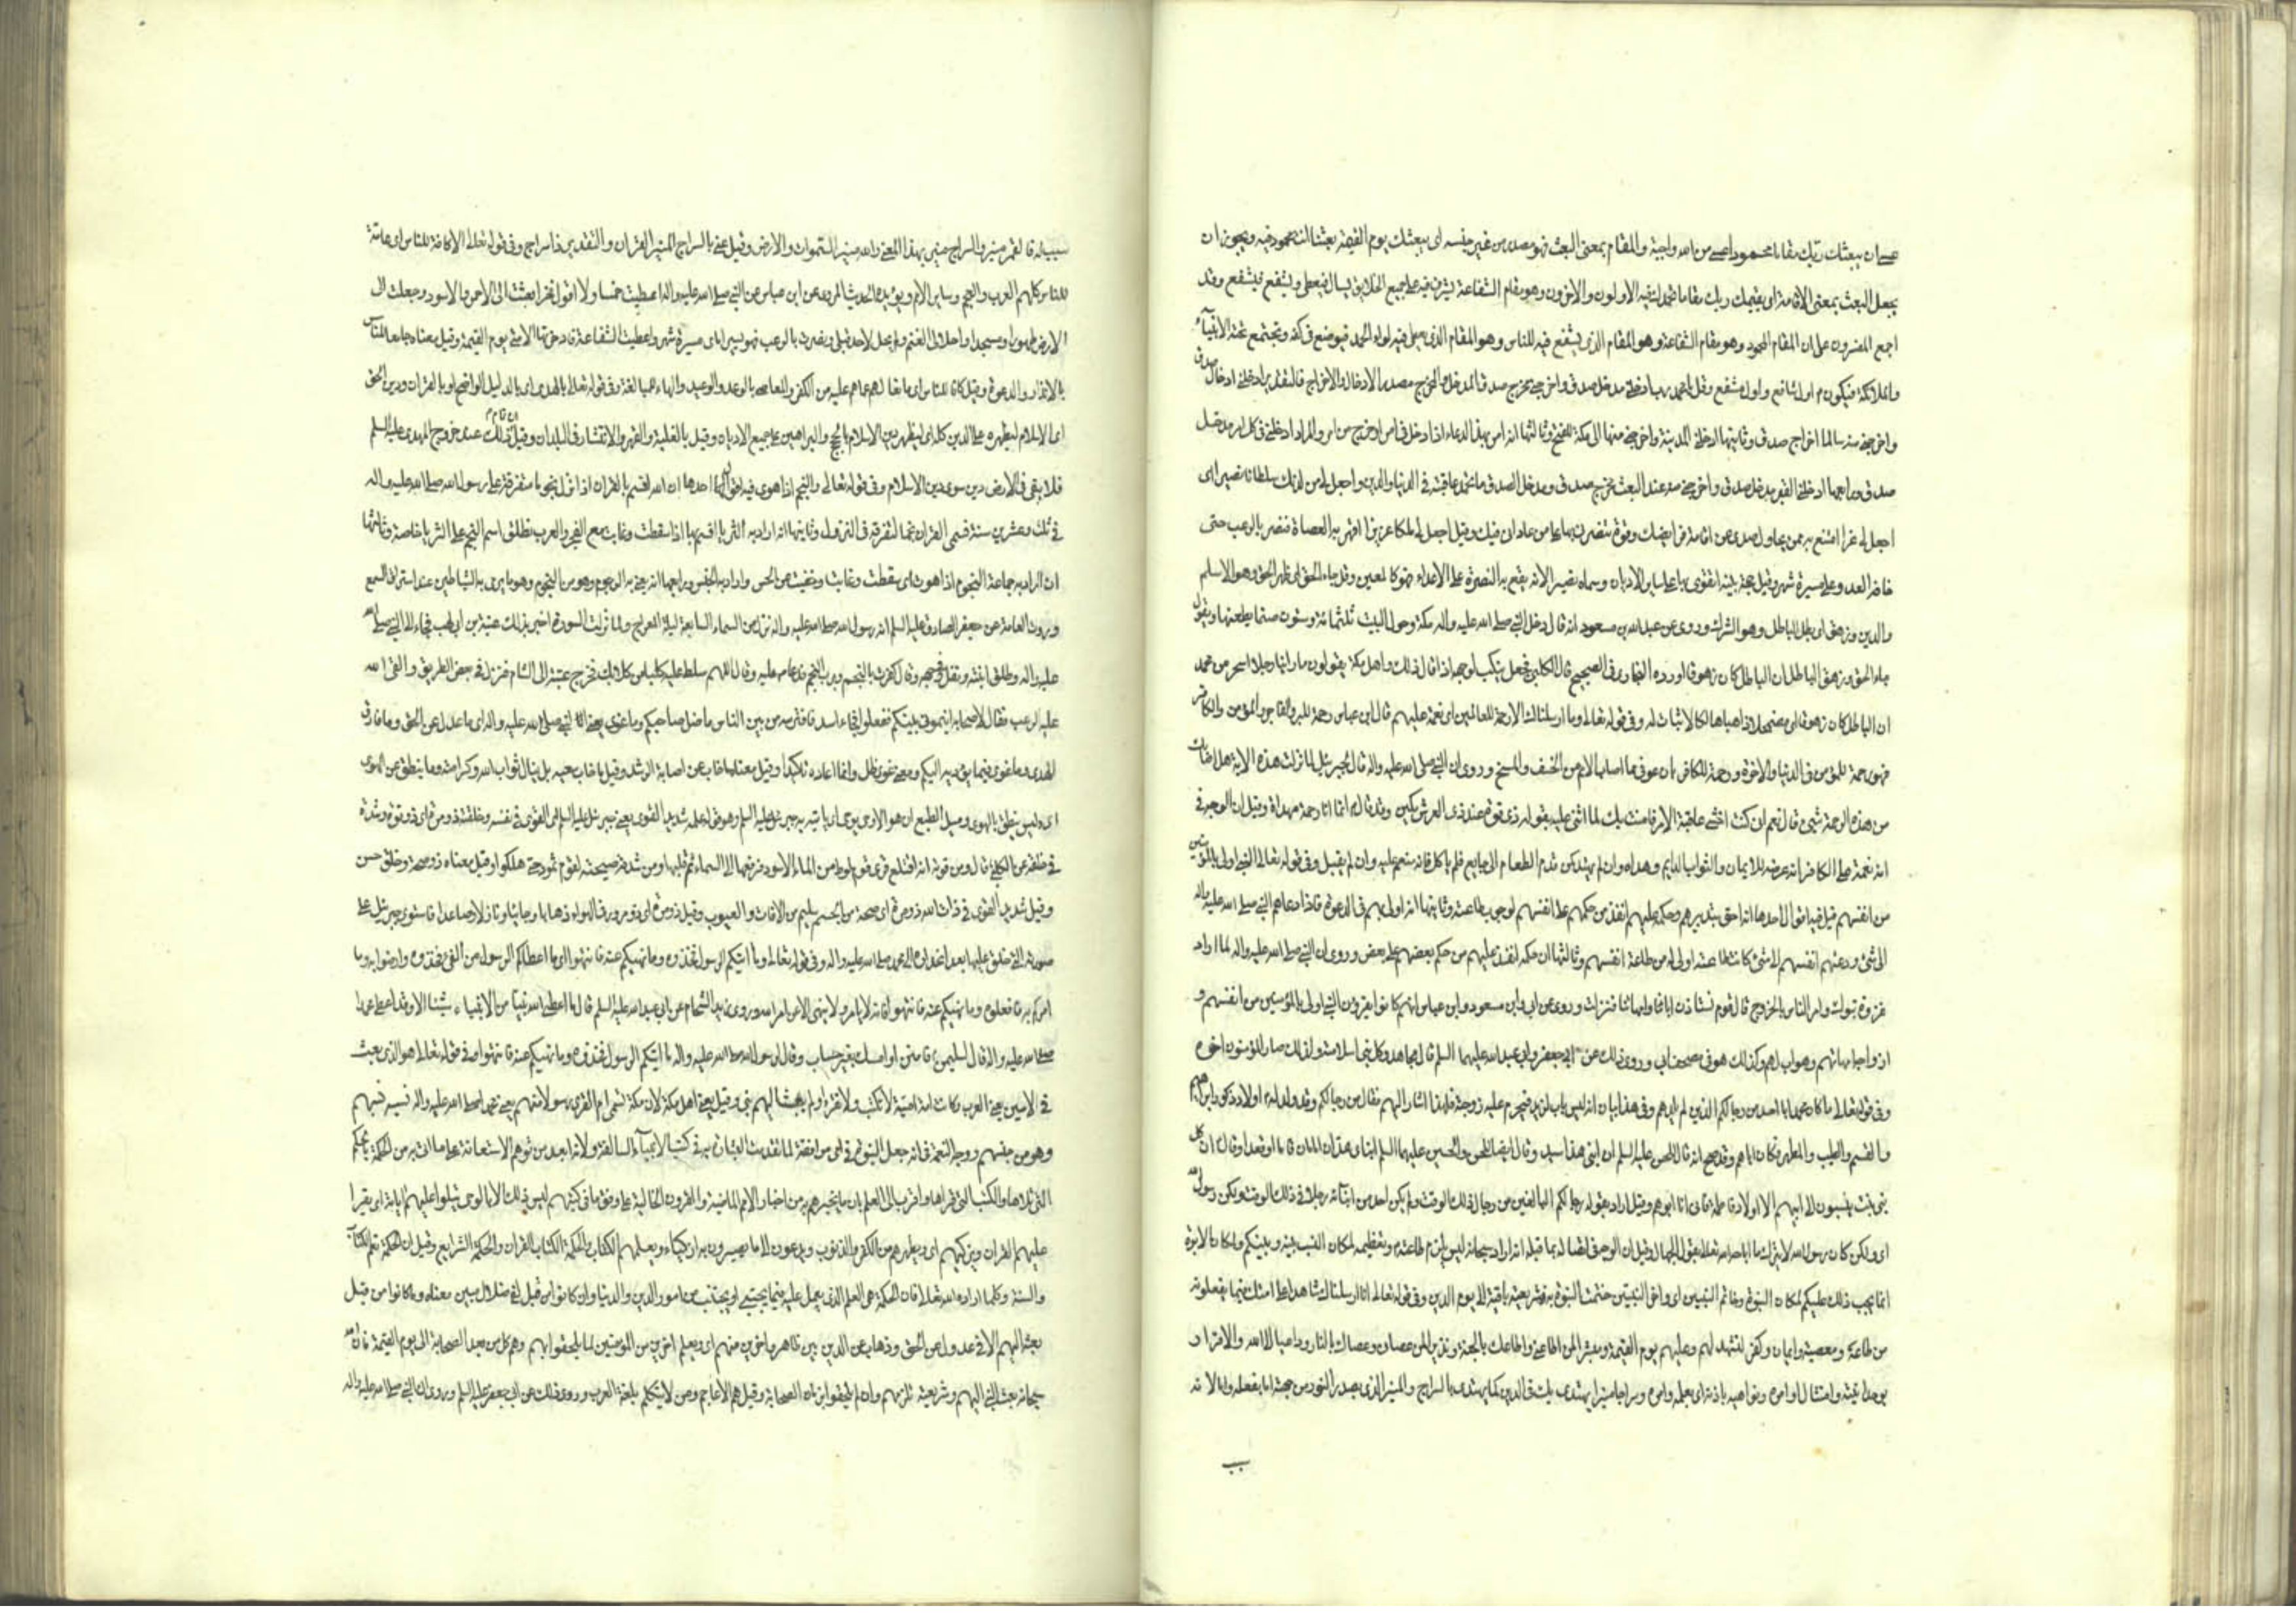 عسى ان يبعثك ربك مقاما محمودا عسى من الله واجبة والمقام بمعنى البعث فهو مصدر من غير جنسه اى يبعثك يوم القيمة بعثا انت محمود فيه ويجوز ان
يجعل البعث بمعنى الاقامة اى يقيمك ربك مقاما تحمدك فيه الاولون والاخرون وهو مقام الشفاعة يشرف فيه على جميع الخلايق يسال فيعطى ويشفع فيشفع وقد
اجمع المفسرون على ان المقام المحمود وهو مقام الشفاعة وهو المقام الذى يشفع فيه للناس وهو المقام الذى يعطى فيه لواء الحمد فيوضع فى كفه وتجتمع تحته الانبيآء
والملائكة فيكون م اول شافع واول مشفع وقل يا محمد رب ادخلنى مدخل صدق واخرجنى مخرج صدق المدخل والمخرج مصدر الادخال والاخراج فالتقدير ادخلنى ادخال صدق
واخرجنى منه سالما اخراج صدق وثانيها ادخلنى المدينة واخرجنى منها الى مكة للفتح وثالثها انه امر بهذا الدعاء اذا دخل فى امر او خرج من امر والمراد ادخلنى فى كل امر مدخل
صدق ورابعها ادخلنى القبر مدخل صدق واخرجنى منه عند البعث مخرج صدق ومدخل الصدق ما تحمد عاقبته فى الدنيا والدين واجعل لى من لدنك سلطانا نصيرا اى
اجعل لى عزا امتنع به ممن يحاول صدى عن اقامة فرايضك وقوة تنصرنى بها على من عادانى فيك وقيل اجعل لى ملكا عزيزا اقهر به العصاة فنصر بالرعب حتى
خافه العدو على مسيرة شهر وقيل حجة بينة اتقوى بها على ساير الاديان وسماه نصيرا لانه يقع به النصرة على الاعداء فهو كالمعين وقل جاء الحق اى ظهر الحق وهو الاسلم
والدين وزهق اى بطل الباطل وهو الشرك وروى عن عبد الله بن مسعود انه قال دخل النبى صلى الله عليه واله مكة وحول البيت ثلثمائة وستون صنما يطعنها ويقول
جاء الحق وزهق الباطل ان الباطل كان زهوقا اورده البخارى فى الصحيح قال الكلبى فجعل ينكب لوجهه اذا قال ذلك واهل مكة يقولون ما راينا رجلا اسحر من محمد
ان الباطل كان زهوقا اى مضمحلا ذاهبا هالكا لا ثبات له وفى قوله تعالى وما ارسلناك الا رحمة للعالمين اى نعمة عليهم قال ابن عباس رحمة للبر والفاجر والمؤمن والكافر
فهو رحمة للمؤمن فى الدنيا والاخرة ورحمة للكافر بان عوفى مما اصاب الامم من الخسف والمسخ وروى ان النبى صلى الله عليه واله قال لجبرئيل لما نزلت هذه الاية هل اصابك
من هذه الرحمة شىء قال نعم انى كنت اخشى عاقبة الامر فامنت بك لما اثنى على بقوله ذى قوة عند ذى العرش مكين وقد قال م انما انا رحمة مهداة وقيل ان الوجه فى
انه نعمة على الكافر انه عرضه للايمان والثواب الدايم وهداه وان لم يهتد كمن قدم الطعام الى جايع فلم ياكل فانه منعم عليه وان لم يقبل وفى قوله تعالى النبى اولى بالمؤمنين
من انفسهم قيل فيه اقوال احدها انه احق بتدبيرهم وحكمه عليهم انفذ من حكمهم على انفسهم لوجوب طاعته وثانيها انه اولى بهم فى الدعوة فاذا دعاهم النبى صلى الله عليه واله
الى شىء ودعتهم انفسهم الى شىء كانت طاعته اولى لهم من طاعة انفسهم وثالثها ان حكمه انفذ عليهم من حكم بعضهم على بعض وروى ان النبى صلى الله عليه واله لما اراد
غزوة تبوك وامر الناس بالخروج قال قوم نستاذن اباءنا وامهاتنا فنزلت وروى عن ابى وابن مسعود وابن عباس انهم كانوا يقرؤن النبى اولى بالمؤمنين من انفسهم و
ازواجه امهاتهم وهو اب لهم وكذلك هو فى مصحف ابى وروى ذلك عن ابى جعفر وابى عبد الله عليهما السلم قال مجاهد وكل نبى اب لامته ولذلك صار المؤمنون اخوة
وفى قوله تعالى ما كان محمد ابا احد من رجالكم الذين لم يلدهم وفى هذا بيان انه ليس باب لزيد فيحرم عليه زوجته فلهذا اشار اليهم فقال من رجالكم وقد ولد له م اولاد ذكور ابراهيم
والقسم والطيب والمطهر فكان اباهم وقد صح انه قال للحسن عليه السلم ان ابنى هذا سيد وقال ايضا للحسن والحسين عليهما السلم ابناى هذان امامان قاما او قعدا وقال ان كل
بنى بنت ينسبون الى ابيهم الا اولاد فاطمة فانى انا ابوهم وقيل اراد بقوله رجالكم البالغين من رجال ذلك الوقت ولم يكن احد من ابنائه رجلا فى ذلك الوقت ولكن رسول الله
اى ولكن كان رسول الله لا يترك ما اباحه الله تعالى بقول الجهال وقيل ان الوجه فى اتصاله بما قبله انه اراد سبحانه ليس يلزم طاعته م وتعظيمه لمكان النسب بينه وبينكم ولمكان الابوة
انما يجب ذلك عليكم لمكان النبوة وخاتم النبيين اى واخر النبيين ختمت النبوة به فشريعته باقية الى يوم الدين وفى قوله تعالى انا ارسلناك شاهدا على امتك فيما يفعلونه
من طاعة ومعصية وايمان وكفر لتشهد لهم وعليهم يوم القيمة ومبشرا لمن اطاعنى واطاعك بالجنة ونذيرا لمن عصانى وعصاك بالنار وداعيا الى الله والاقرار
بوحدانيته وامتثال اوامره ونواهيه باذنه اى بعلمه وامره وسراجا منيرا يهتدى بك فى الدين كما يهتدى بالسراج والمنير الذى يصدر النور من جهته اما بفعله واما لانه
سبب له فالقمر منير والسراج منير بهذا المعنى والله منير السموات والارض وقيل عنى بالسراج المنير القران والتقدير ذا سراج وفى قوله تعالى الا كافة للناس اى عامة
للناس كلهم العرب والعجم وساير الامم ويؤيده الحديث المروى عن ابن عباس عن النبى صلى الله عليه واله اعطيت خمسا ولا اقول فخرا بعثت الى الاحمر والاسود وجعلت لى
الارض طهورا ومسجدا واحل لى المغنم ولم يحل لاحد قبلى ونصرت بالرعب فهو يسير امامى مسيرة شهر واعطيت الشفاعة فادخرتها لامتى يوم القيمة وقيل معناه جامعا للناس
بالانذار والدعوة وقيل كافا للناس اى مانعا لهم عما هم عليه من الكفر والمعاصى بالوعد والوعيد والهاء للمبالغة وفى قوله تعالى بالهدى اى بالدليل الواضح او بالقران ودين الحق
اى الاسلام ليظهره على الدين كله اى ليظهر دين الاسلام بالحجج والبراهين على جميع الاديان وقيل بالغلبة والقهر والانتشار فى البلدان وقيل ان تمام ذلك عند خروج المهدى عليه السلم
فلا يبقى فى الارض دين سوى دين الاسلام وفى قوله تعالى والنجم اذا هوى فيه اقوال احدها ان الله اقسم بالقران اذا نزل نجوما متفرقة على رسول الله صلى الله عليه واله
فى ثلث وعشرين سنة فسمى القران نجما لتفرقه فى النزول وثانيها انه اراد به الثريا اقسم بها اذا سقطت وغابت مع الفجر والعرب تطلق اسم النجم على الثريا خاصة وثالثها
ان المراد به جماعة النجوم اذا هوت اى سقطت وغابت وخفيت عن الحس واراد به الجنس ورابعها انه يعنى به الرجوم وهو من النجوم وهو ما يرمى به الشياطين عند استراق السمع
وروت العامة عن جعفر الصادق عليه السلم انه رسول الله صلى الله عليه واله نزل من السماء السابعة ليلة المعراج ولما نزلت السورة اخبر بذلك عتبة بن ابى لهب فجاء الى النبى صلى الله
عليه واله وطلق ابنته وتفل فى وجهه وقال كفرت بالنجم ورب النجم فدعا م عليه وقال اللهم سلط عليه كلبا من كلابك فخرج عتبة الى الشام فنزل فى بعض الطريق والقى الله
عليه الرعب فقال لاصحابه انيمونى بينكم ففعلوا فجاء اسد فافترسه من بين الناس ما ضل صاحبكم وما غوى يعنى النبى صلى الله عليه واله اى ما عدل عن الحق وما فارق
الهدى وما غوى فيما يؤديه اليكم ومعنى غوى ضل وانما اعاده تاكيدا وقيل معناه ما خاب عن اصابة الرشد وقيل ما خاب سعيه بل ينال ثواب الله وكرامته وما ينطق عن الهوى
اى وليس ينطق بالهوى وميل الطبع ان هو الا وحى يوحى اى ياتيه به جبرئيل عليه السلم وهو قوله علمه شديد القوى يعنى جبرئيل عليه السلم اى القوى فى نفسه وخلقته ذو مرة اى ذو قوة وشدة
فى خلقه عن الكلبى قال ومن قوته انه اقتلع قرى قوم لوط من الماء الاسود فرفعها الى السماء ثم قلبها ومن شدته صيحته لقوم ثمود حتى هلكوا وقيل معناه ذو صحة وخلق حسن
وقيل شديد القوى فى ذات الله ذو مرة اى صحة من الجسم سليم من الافات والعيوب وقيل ذو مرة اى ذو مرور فى الهواء ذاهبا وجائيا ونازلا وصاعدا فاستوى جبرئيل على
صورته التى خلق عليها بعد انحداره الى محمد صلى الله عليه واله وفى قوله تعالى وما اتيكم الرسول فخذوه وما نهيكم عنه فانتهوا اى ما اعطاكم الرسول من الفىء فخذوه وارضوا به وما
امركم به فافعلوه وما نهيكم عنه فانتهوا فانه لا يامر ولا ينهى الا عن امر الله وروى زيد الشحام عن ابى عبد الله عليه السلم قال ما اعطى الله نبيا من الانبياء شيئا الا وقد اعطى محمدا
صلى الله عليه واله قال لسليمن فامنن او امسك بغير حساب وقال لرسول الله صلى الله عليه واله ما اتيكم الرسول فخذوه وما نهيكم عنه فانتهوا فى قوله تعالى هو الذى بعث
فى الاميين يعنى العرب وكانت امة امية لا تكتب ولا تقرء ولم يبعث اليهم نبى وقيل يعنى اهل مكة لان مكة تسمى ام القرى رسولا منهم يعنى محمدا صلى الله عليه واله نسبه نسبهم
وهو من جنسهم ووجه النعمة فى انه جعل النبوة فى امى موافقة لما تقدمت البشارة به فى كتب الانبيآء السالفة ولانه ابعد من توهم الاستعانة على ما اتى به من الحكمة
التى تلاها والكتب التى قراها واقرب الى العلم بان ما يخبرهم به من اخبار الامم الماضية والقرون الخالية على وفق ما فى كتبهم ليس ذلك الا بالوحى يتلوا عليهم اياته اى يقرا
عليهم القران ويزكيهم اى ويطهرهم من الكفر والذنوب ويدعون الى ما يصيرون به ازكياء ويعلمهم الكتاب والحكمة الكتاب القران والحكمة الشرايع وقيل ان الحكمة تعم الكتاب
والسنة وكلما اراده الله تعالى فان الحكمة هى العلم الذى يعمل عليه فيما يجتبى او يجتنب من امور الدين والدنيا وان كانوا من قبل لفى ضلال مبين معناه وما كانوا من قبل
بعثه اليهم الا فى عدول عن الحق وذهاب عن الدين بين ظاهر واخرين منهم اى ويعلم اخرين من المؤمنين لما يلحقوا بهم وهم كل من بعد الصحابة الى يوم القيمة فان الله
سبحانه بعث النبى اليهم وشريعته تلزمهم وان لم يلحقوا بزمان الصحابة وقيل هم الاعاجم ومن لا يتكلم بلغة العرب وروى ذلك عن ابى جعفر عليه السلم وروى ان النبى صلى الله عليه واله